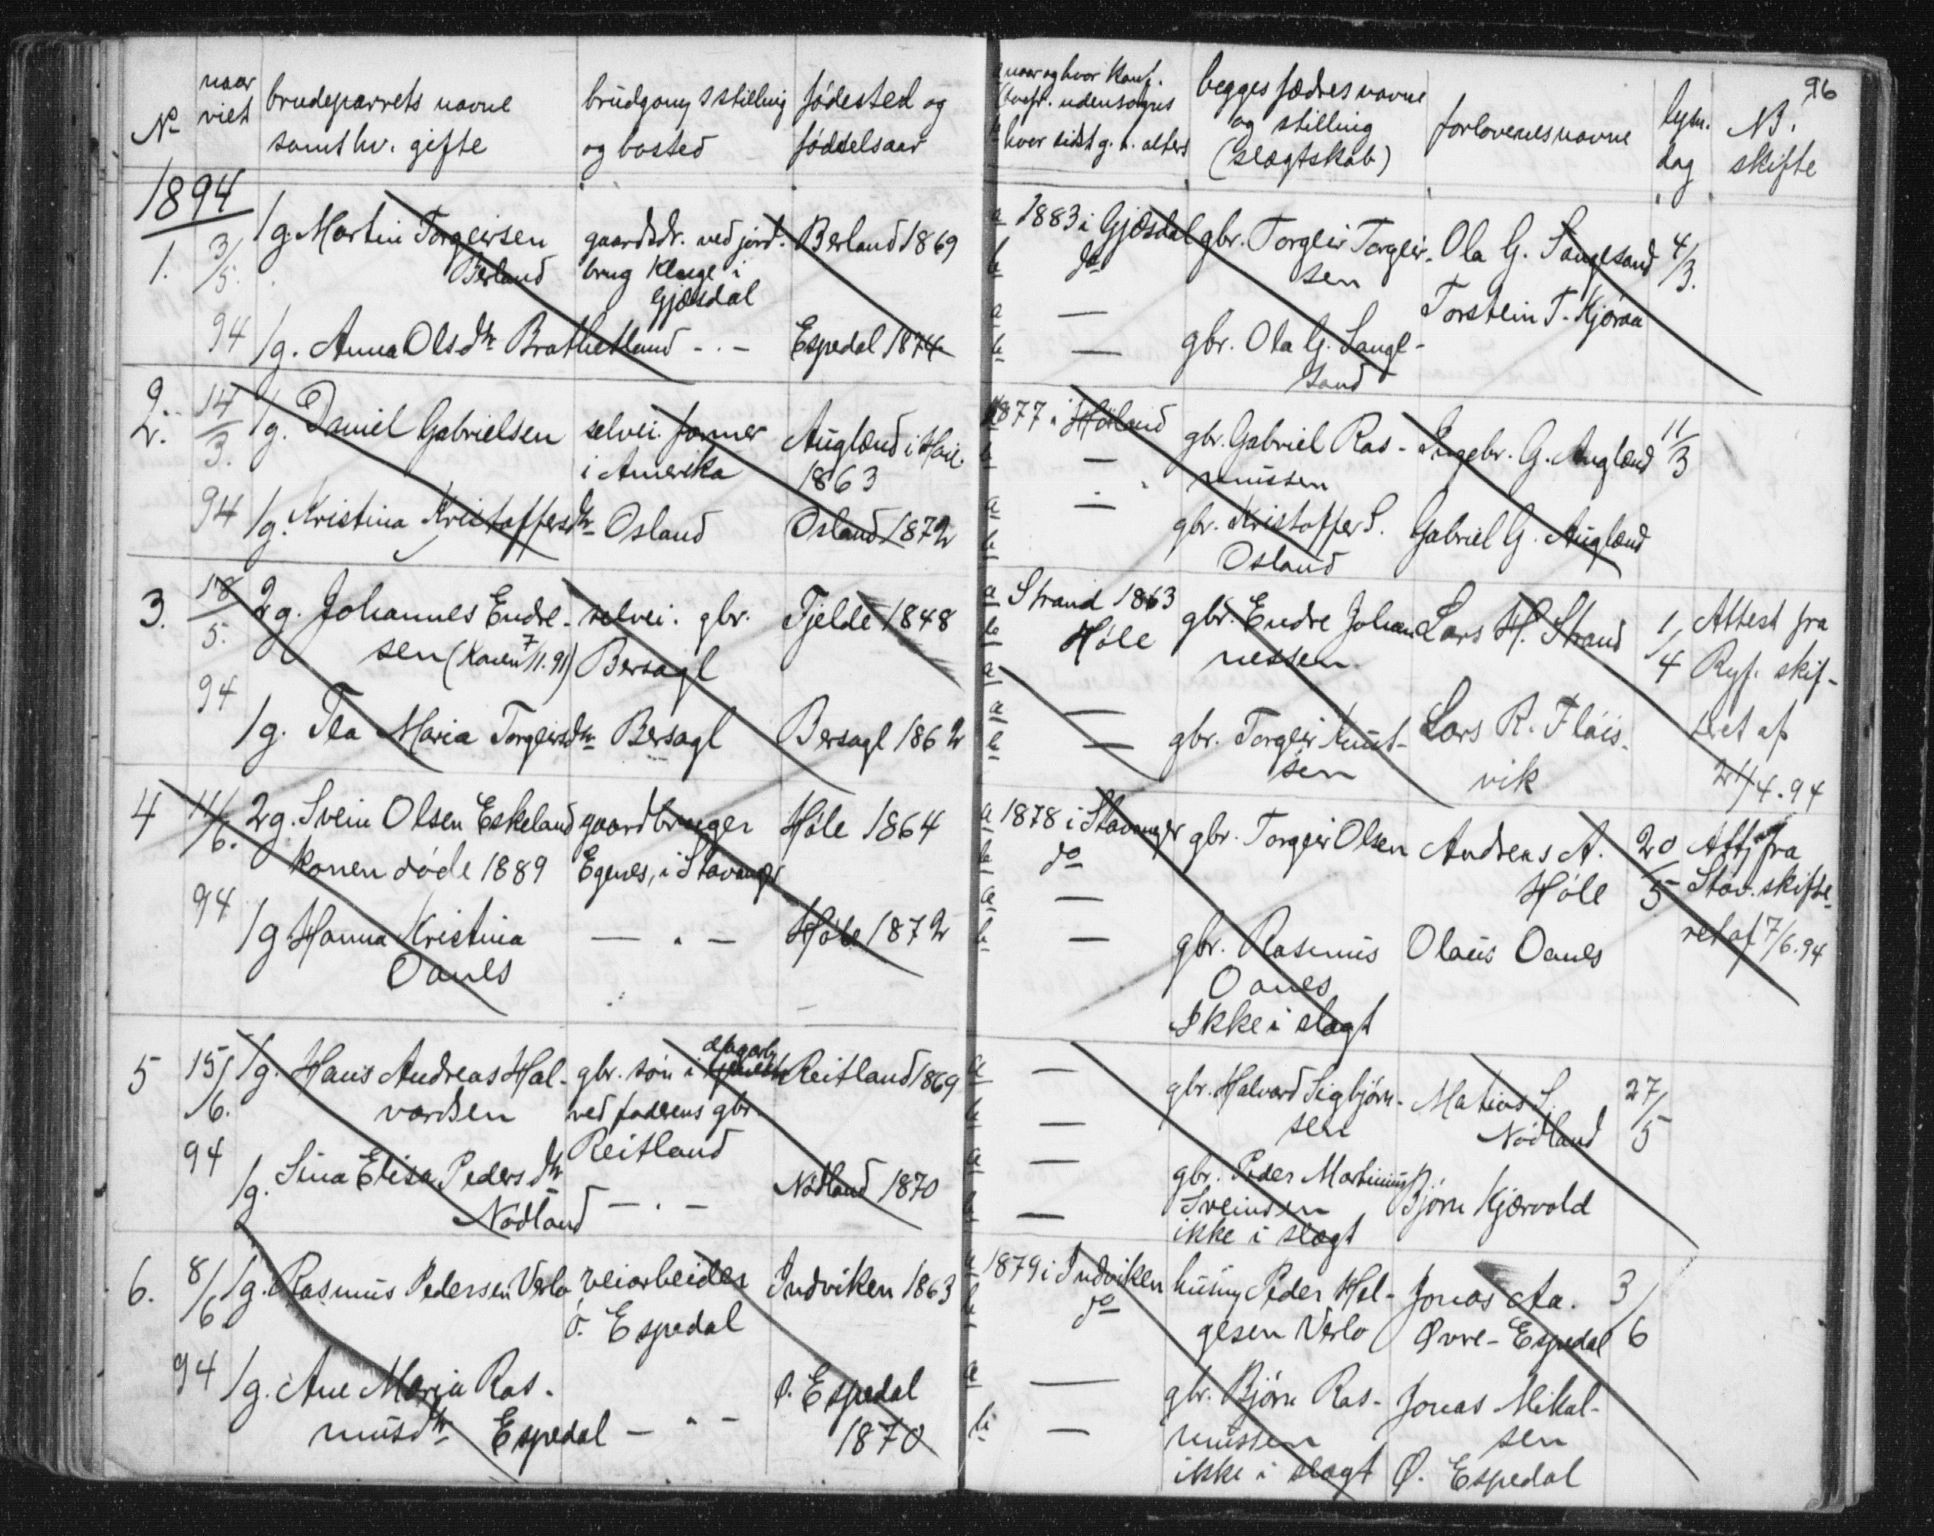 96
No
naar
viet
brudeparrets navne
samt hv. gifte
brudgoms stilling
og bosted
fødested og
fødselsaar
a naar og hvor konf.
udensogns
b hvor sidst g. t. alters
begges fædres navne
og stilling
(slægtskab)
forlovernes navne
lysn.
dag
NB.
skifte
1894
1.
3/5.
94
1g. Martin Torgeirsen
Berland
gaardsdr. ved jord-
brug Klage i
Gjæsdal
Berland 1869
a 1883 i Gjæsdal
b do
gbr. Torgeir Torgeir-
sen
Ola G. Sanglesand
4/3.
Torstein T. Kjøraa
1g. Anna Olsdtr Brathetland
- . -
Espedal 1874
a —
b —
gbr. Ola G. Sangl-
sand
2.
14/3.
94
1g. Daniel Gabrielsen
selvei. farmer
i Amerika
Augland i Høil.
1863
1877 i Høiland
b —
gbr. Gabriel Ras-
mussen
Ingebr. G. Augland
11/3
1g. Kristina Kristoffersdtr
Osland
Osland 1872
a —
b
gbr. Kristoffer S.
Osland
Gabriel G. Augland
3.
18/5.
94
2g. Johannes Endre-
sen (Konen 7/11.91)
selvei. gbr.
Bersagl
Fjelde 1848
a Strand 1863
b Høle
a
gbr. Endre Johan-
nessen
Lars H. Strand
1/4
Attest fra
Ryf. skif-
teret af
21/4.94
1g. Tea Maria Torgeirsdtr
Bersagl
Bersagl 1862
a —
b —
gbr. Torgeir Knut-
sen
Lars R. Fløis-
vik
4
11/6.
94
2g. Svein Olsen Eskeland
konen døde 1889
gaardbruger
Egenes, i Stavanger
Høle 1864
a 1878 i Stavanger
b do
gbr. Torgeir Olsen
Andreas A.
Høle
20/5
Att. fra
Stav. skifte-
ret af 7/6.94
1g Hanna Kristina
Oanes
— . —
Høle 1872
a —
b —
gbr. Rasmus
Oanes
Ikke i slægt
Olaus Oanes
5
15/6.
94
1g. Hans Andreas Hal-
vardsen
gbr. søn i dagarb.
ved faderens gbr.
Reitland
Reitland 1869
a —
b —
gbr. Halvard Sigbjørn-
sen
Matias S.
Nødland
27/5
1g. Sina Elisa Pedersdtr
Nødland
— . —
Nødland 1870
a —
b —
gbr. Peder Martinius
Sveinsen
ikke i slægt
Bjørn Kjærvold
6.
8/6
94
1g. Rasmus Pedersen Verlo
veiarbeider
ø. Espedal
Indviken 1863
a 1879 i Indviken
b do
husm. Peder Hel-
gesen Verlo
Jonas Aa.
Øvre-Espedal
3/6
1g. Ane Maria Ras-
musdtr Espedal
— . —
Ø. Espedal
1870
a —
b —
gbr. Bjørn Ras-
mussen
ikke i slægt
Jonas Mikal-
sen
Ø. Espedal